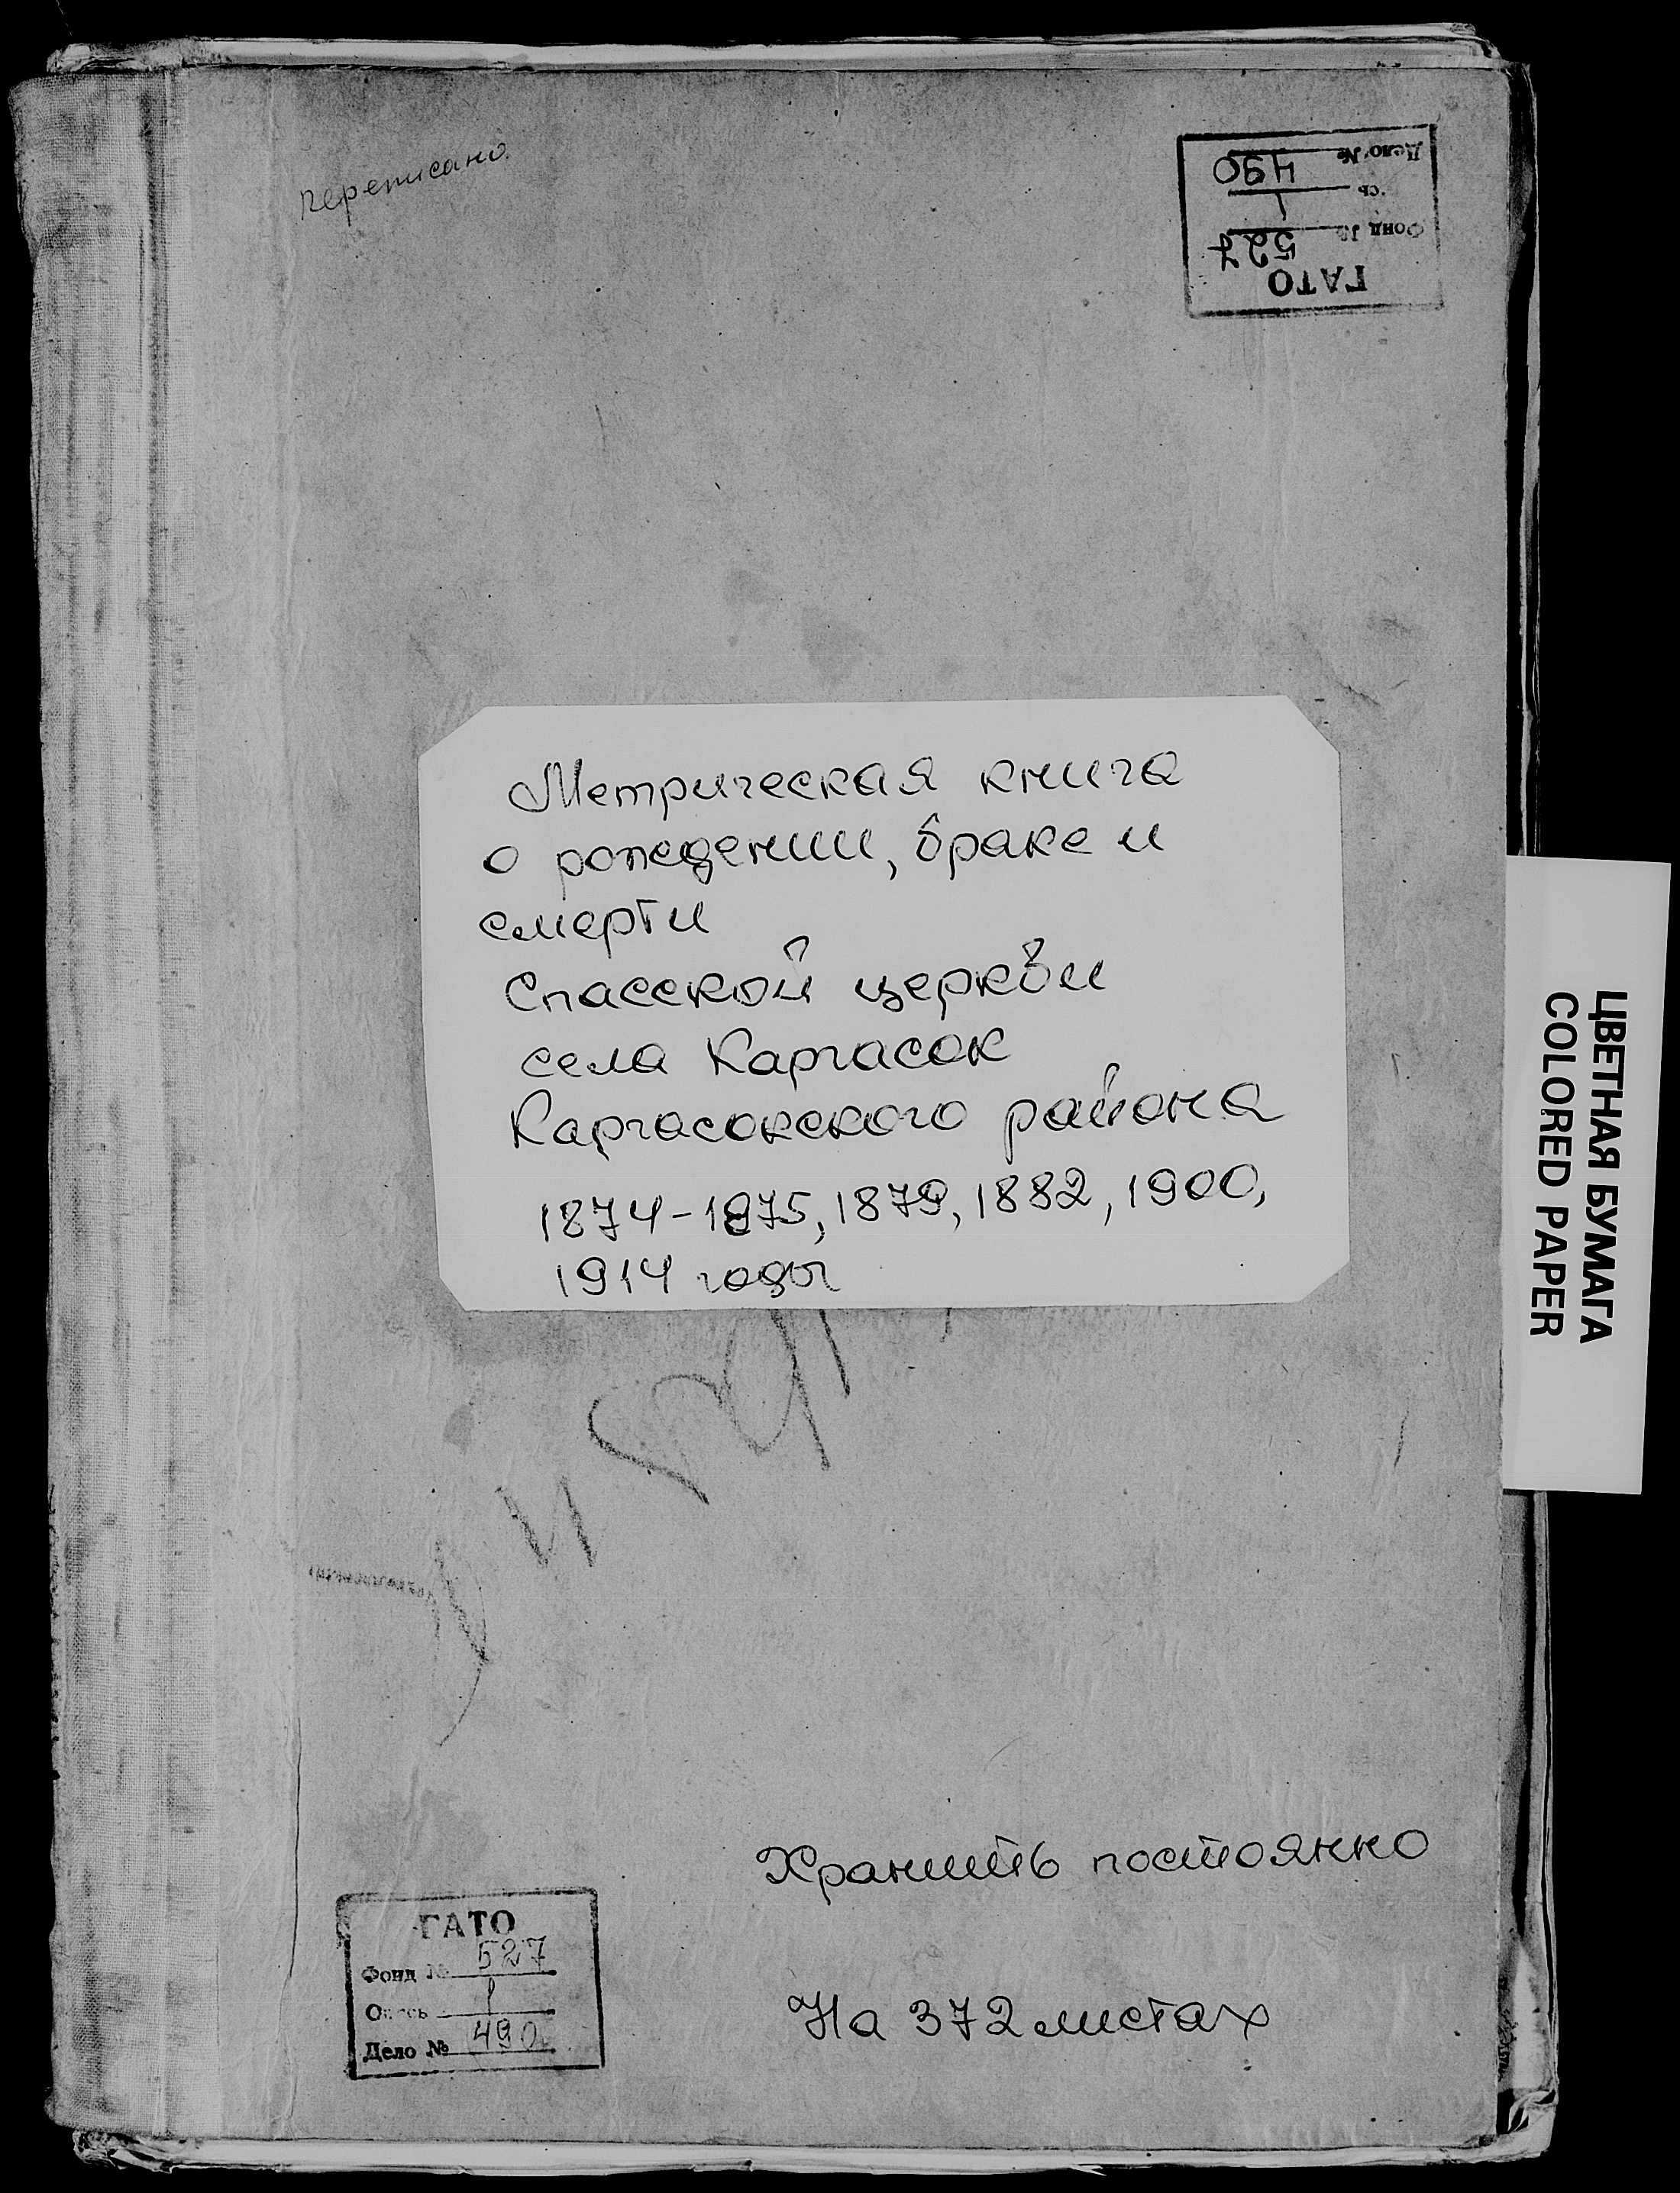 переписано
ГАТО
Фонд № 527
сь 1
Дело № 490
Метрическая книга
о рождении, браке и
смерти
Спасской церкви
села Каргасок
Каргасокского района
1874-1875, 1879, 1882, 1900,
1914 годы
ЦВЕТНАЯ БУМАГА
COLORED PAPER
Хранить постоянно
На 372 листах
ГАТО
Фонд № 527
Опись 1
Дело № 490